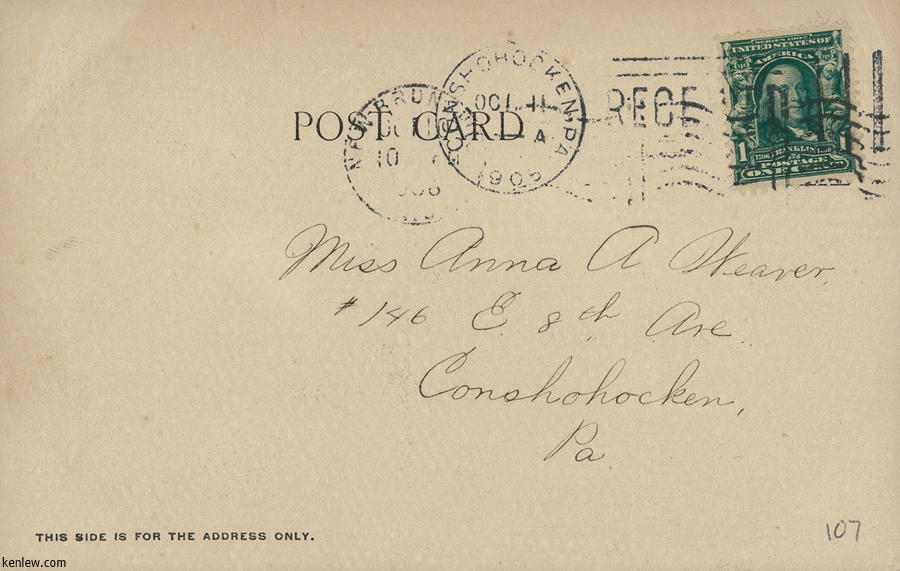 POST CARD
CONSHOHOCKEN, PA
OCT 11
A
190
NEW BRUN
10
REC
SERIES 1902
UNITED STATES OF
AMERICA
1706 FRANKLIN 1790
1
POSTAGE
ONE CENT
Miss Anna A Weaver,
# 146 E. 8th Ave.
Conshohocken,
Pa
THIS SIDE IS FOR THE ADDRESS ONLY.
107
kenlew.com